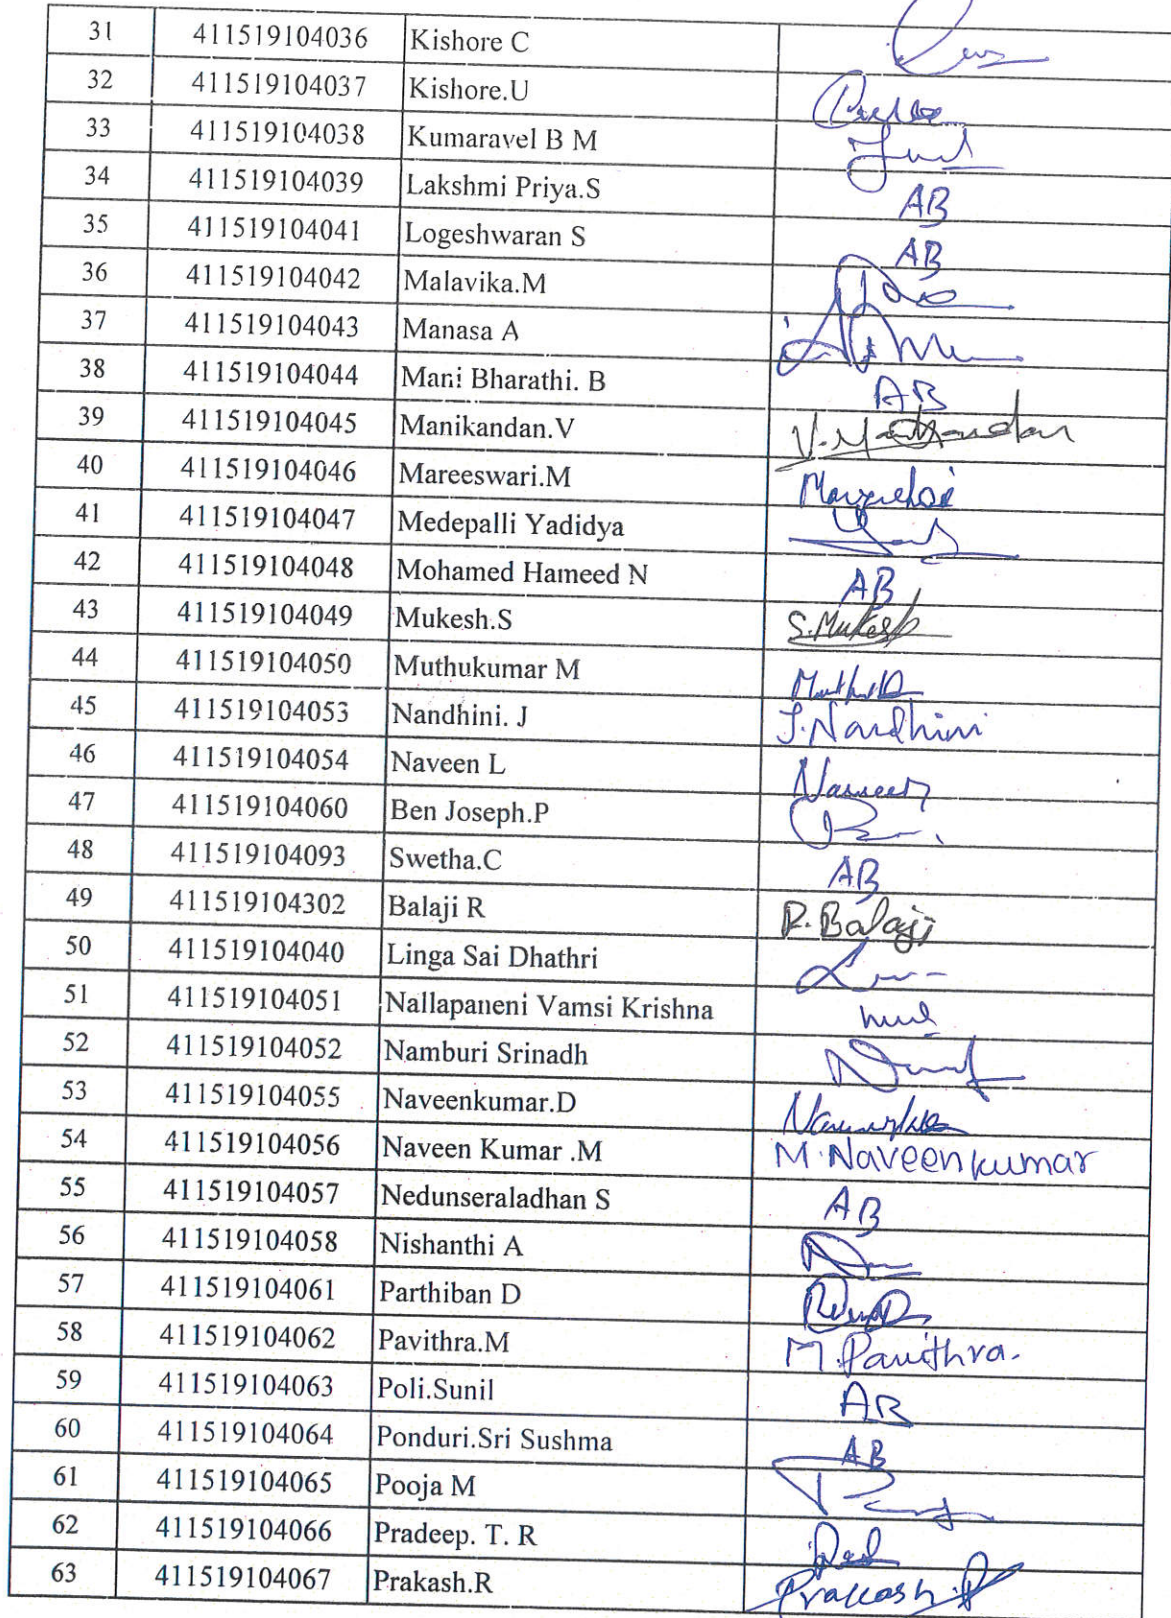 31 411519104036 Kishore C
32 411519104037 Kishore.U
33 411519104038 Kumaravel B M
34 411519104039 Lakshmi Priya.S AB
35 411519104041 Logeshwaran S AB
36 411519104042 Malavika.M
37 411519104043 Manasa A
38 411519104044 Mani Bharathi. B AB
39 411519104045 Manikandan.V
40 411519104046 Mareeswari.M
41 411519104047 Medepalli Yadidya
42 411519104048 Mohamed Hameed N AB
43 411519104049 Mukesh.S S.Mukesh
44 411519104050 Muthukumar M
45 411519104053 Nandhini. J J.Nandhini
46 411519104054 Naveen L Naveen
47 411519104060 Ben Joseph.P
48 411519104093 Swetha.C AB
49 411519104302 Balaji R R.Balaji
50 411519104040 Linga Sai Dhathri
51 411519104051 Nallapaneni Vamsi Krishna
52 411519104052 Namburi Srinadh
53 411519104055 Naveenkumar.D
54 411519104056 Naveen Kumar .M M.Naveenkumar
55 411519104057 Nedunseraladhan S AB
56 411519104058 Nishanthi A
57 411519104061 Parthiban D
58 411519104062 Pavithra.M M.Pavithra.
59 411519104063 Poli.Sunil AB
60 411519104064 Ponduri.Sri Sushma AB
61 411519104065 Pooja M
62 411519104066 Pradeep. T. R
63 411519104067 Prakash.R Prakash.R